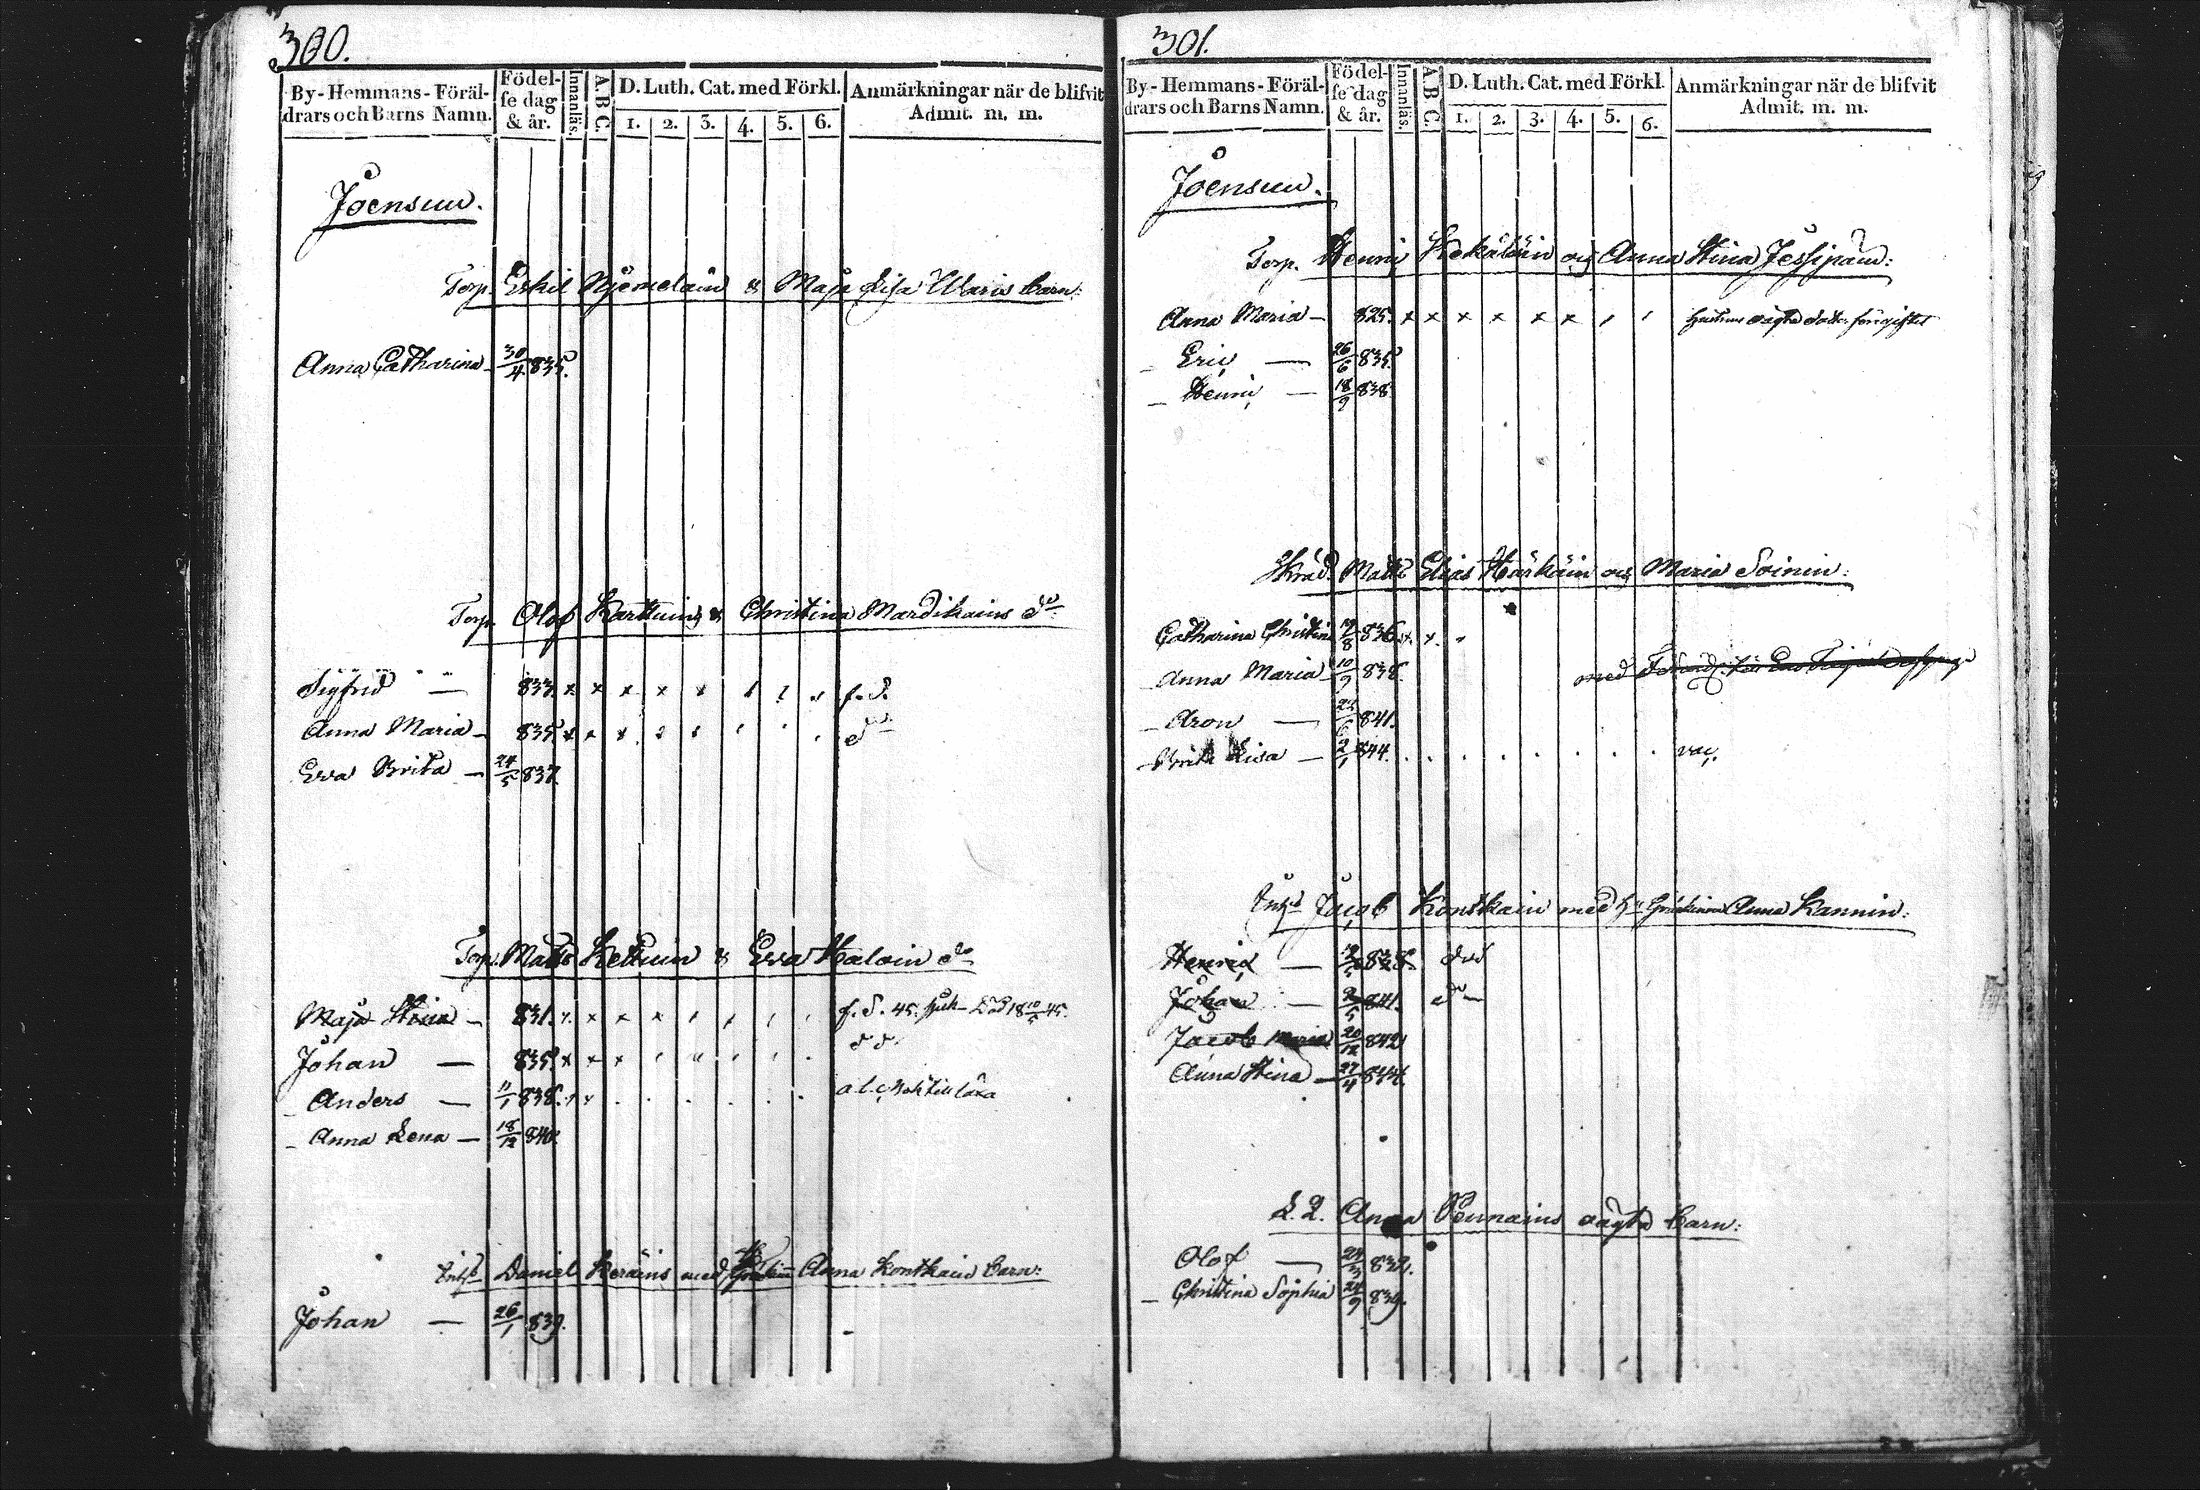 300.
By-Hemmans-Föräl-drars och Barns Namn. Födel-se dag & år. Innanläs. A.B.C. D. Luth. Cat. med Förkl. 1. 2. 3. 4. 5. 6. Anmärkningar när de blifvit Admit. m. m.
Joensuu.
Torp. Eskil & Maja Lisa barn:
Anna Catharina - 30/4 835.
Torp. Olof Karttuin & Christina Mardikains do
Sigfrid — 833. x x x x x f. d.
Anna Maria - 835. x x x do
Eva Brita - 24/5 837.
Torp. Matts Kettuin & Eva Haloin do
Maja Stina - 831. x x x x f. d. 45. sjuk Död 18 10/5 45.
Johan — 835. x x x x d d
- Anders — 11/1 838. till läsa
- Anna Lena - 18/12 840.
Inhs Daniel Keräins med Anna Kontkain barn:
Johan — 26/1 839.
301.
By-Hemmans-Föräl-drars och Barns Namn. Födel-se dag & år. Innanläs. A.B.C. D. Luth. Cat. med Förkl. 1. 2. 3. 4. 5. 6. Anmärkningar när de blifvit Admit. m. m.
Joensuu.
Torp. Henric Kekäläin och Anna Stina
Anna Maria - 825. x x x x x x Hustruns oägta
- Eric — 26/6 835.
- Henric — 18/9 838
Matts Elias Härkäin och Maria Soinin:
Catharina Christina 836. x x
- Anna Maria 10/9 838. med
- Aron — 841.
- Brita Lisa — 2/1 844. vac.
Inhs Jacob Kontkain med Anna Kannin:
Henric — 838. död
Johan — 2/5 841. do
Jacob 20/12 842
Anna Stina - 27/4 844.
L. Q. Anna Pennains oägta barn:
Olof — 24/3 832.
- Christina Sophia 24/9 839.